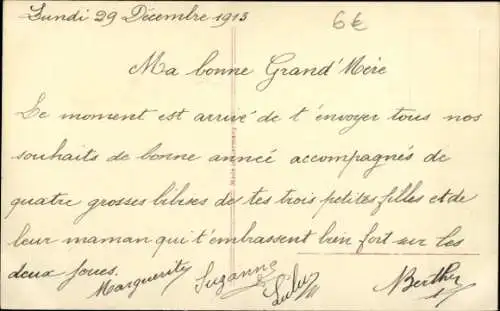 Lundi 29 Décembre 1913
6€
Ma bonne Grand'Mère
Le moment est arrivé de t'envoyer tous nos
souhaits de bonne année accompagnés de
quatre grosses bibises de tes trois petites filles et de
leur maman qui t'embrassent bien fort sur les
deux joues.
Marguerite
Suzanne
Lulu
Berthe
Made in Germany